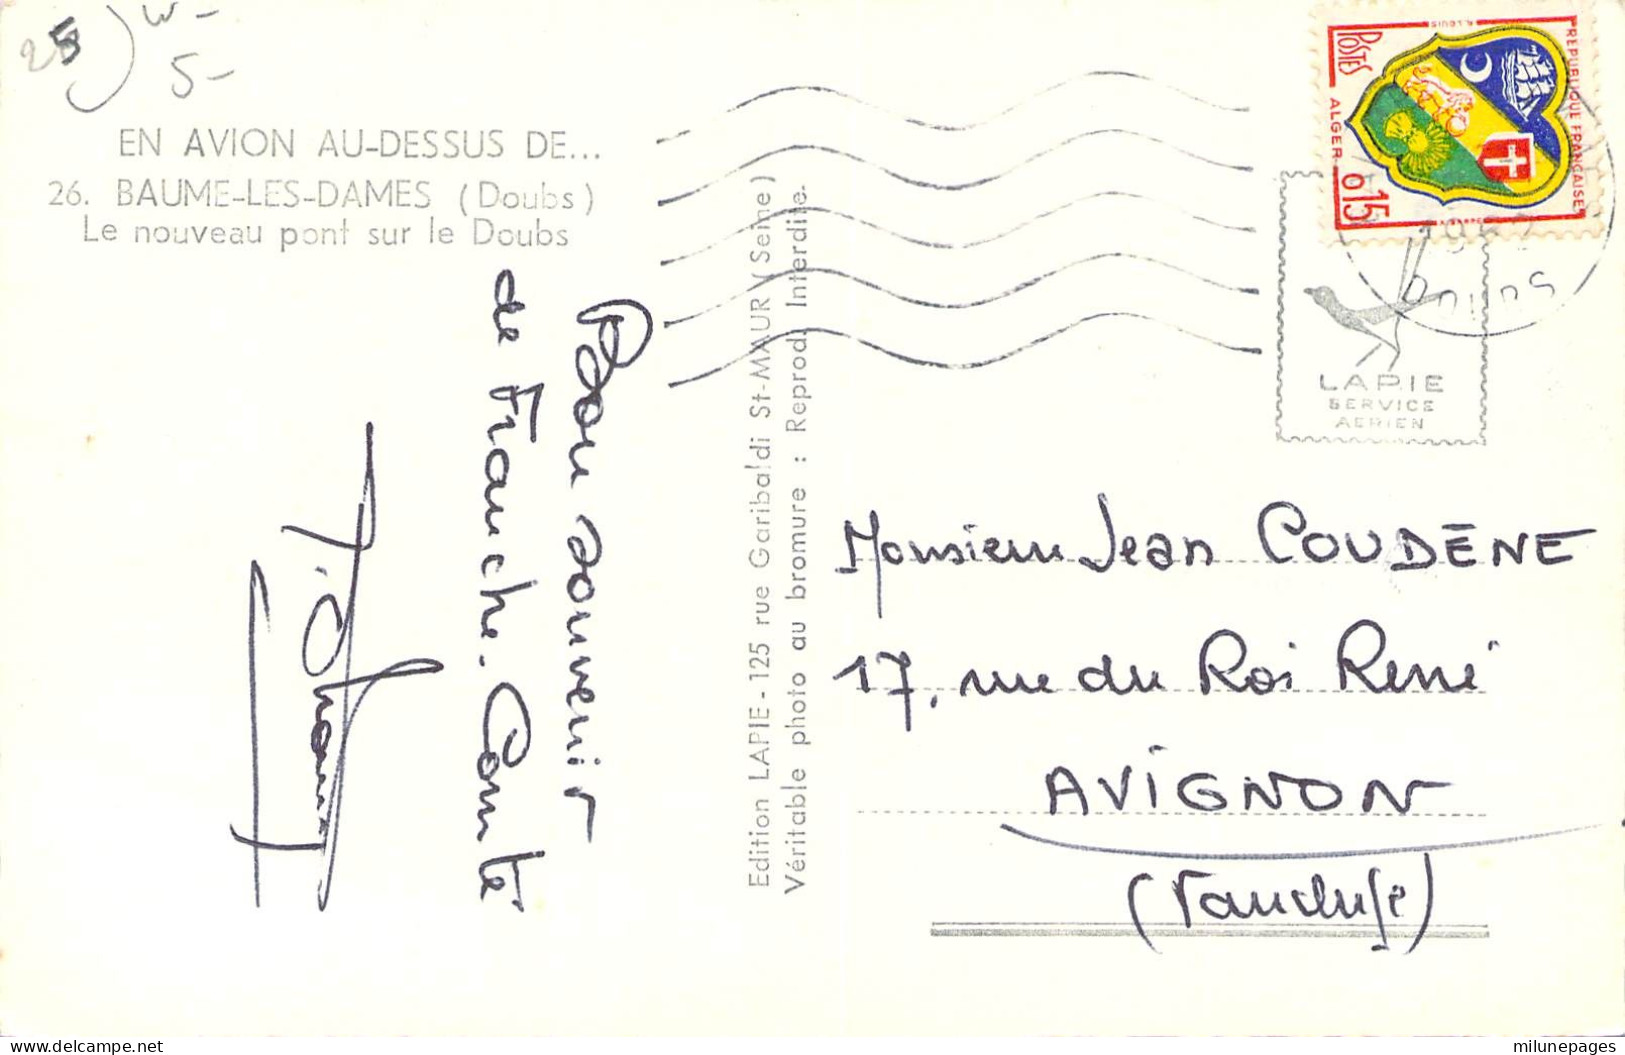 25
5-
EN AVION AU-DESSUS DE...
26. BAUME-LES-DAMES (Doubs)
Le nouveau pont sur le Doubs
Bon souvenir
de Franche-Comté
Edition LAPIE - 125 rue Garibaldi St-MAUR (Seine)
Véritable photo au bromure : Reprod. Interdite.
REPUBLIQUE FRANCAISE
POSTES
ALGER
0,15
DOUBS
LAPIE
SERVICE
AERIEN
Monsieur Jean COUDÈNE
17, rue du Roi René
AVIGNON
(Vaucluse)
delcampe.net
milunepages